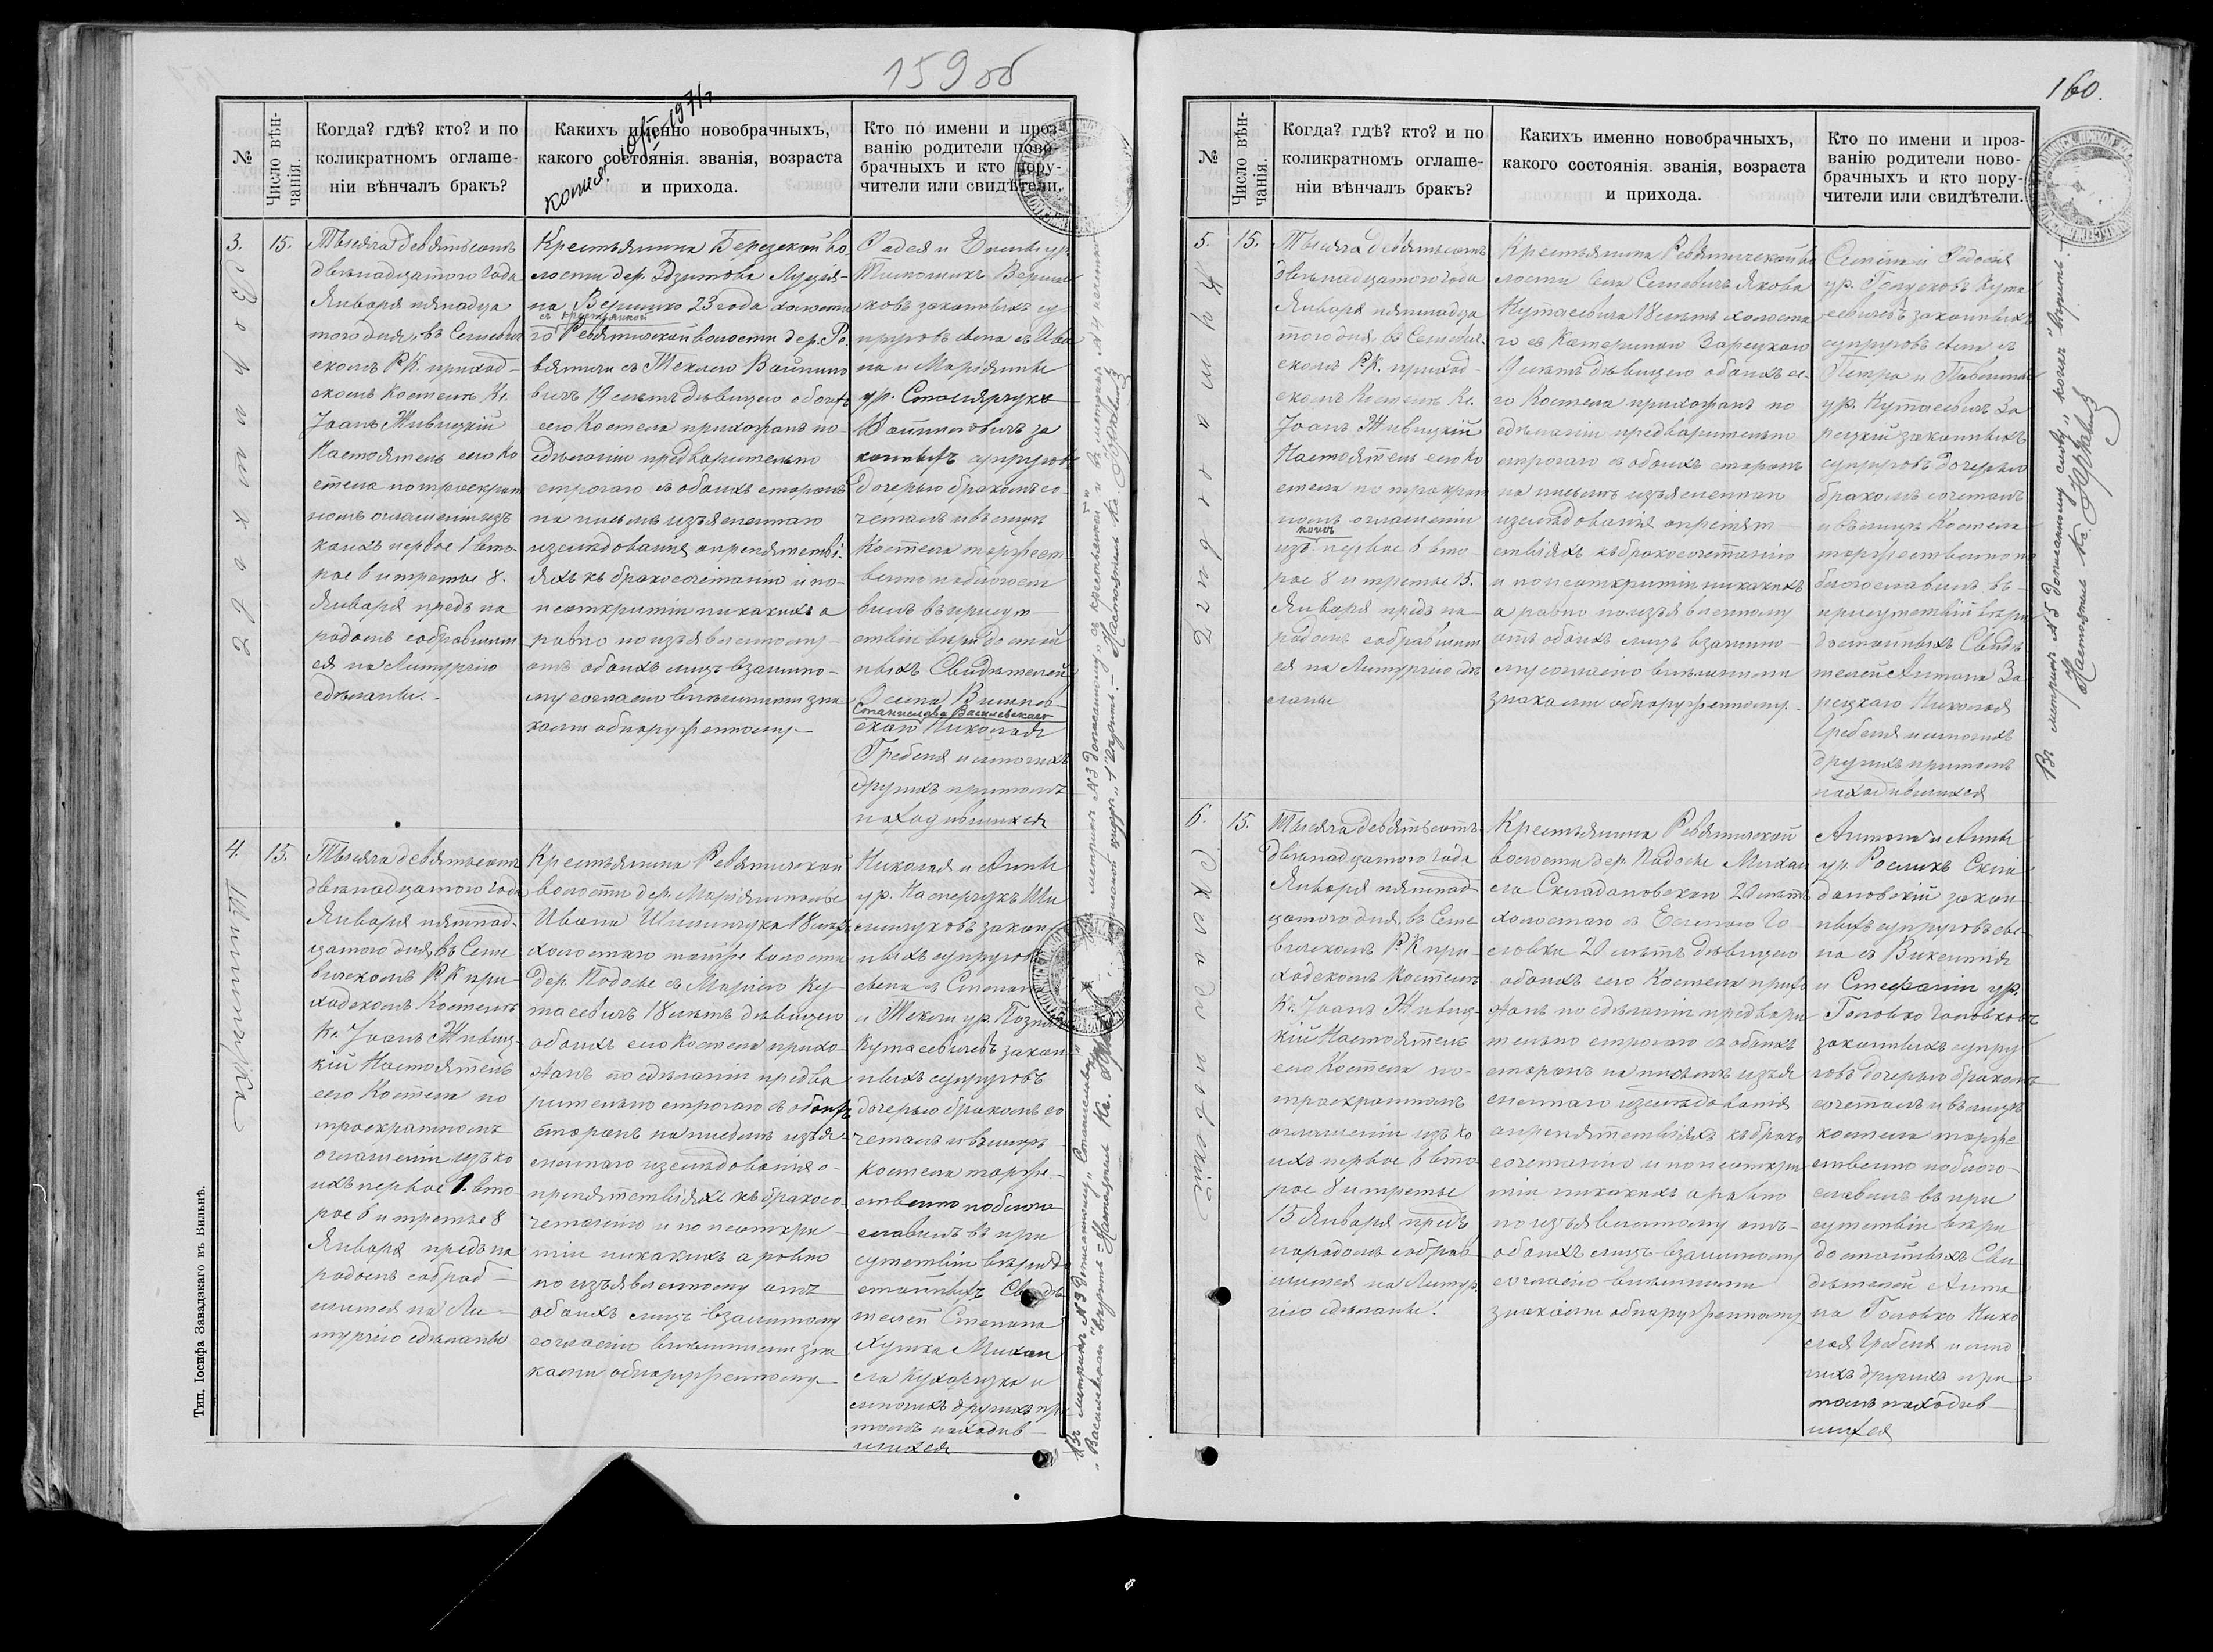 159 об
копия 10/II-1971г
№
Число вѣн-
чанія.
Когда? гдѣ? кто? и по
коликратномъ оглаше-
ніи вѣнчалъ бракъ?
Какихъ именно новобрачныхъ,
какого состоянія. званія, возраста
и прихода.
Кто по имени и проз-
ванію родители ново-
брачныхъ и кто пору-
чители или свидѣтели.
3.
15.
Тысяча девятьсотъ
двѣнадцатого года
Января пятнадца
того дня, въ Сешевич
скомъ Р.К. приход-
скомъ Костелѣ Кс.
Іоанъ Живицкій
Настоятель сего Ко
стела по троекрат
номъ оглашеніи изъ
коихъ первое 1 вто-
рое 6 и третье 8.
Января предъ на
родомъ собравшим
ся на Литургію
сдѣланы.-
Крестьянина Березской во
лости дер. Здитова Луція-
на Веришко 23 года холоста
съ крестьянкой
го Ревятичской волости дер. Ре
вятичи съ Теклею Войтино
вичъ 19 лѣтъ дѣвицею обоихъ
сего Костела прихожанъ по-
сдѣланіи предварительно
строгаго съ обоихъ сторонъ
на письмѣ изъясненнаго
изслѣдованія о препятстві-
яхъ къ бракосочетанію и по-
неоткрытіи никакихъ а
равно по изъявленному
отъ обоихъ лицъ взаимно-
му согласію внѣшними зна
ками обнаруженному-
Фадея и Ельжб. ур.
Тимошикъ Вериш-
ковъ законныхъ су-
пруговъ сына съ Ива
на и Маріянны
ур. Столярчукъ
Войтиновичъ за
конныхъ супруговъ
дочерью бракомъ со-
четалъ и въ лицѣ
Костела торжест-
венно поблагосло
вилъ въ присут-
ствіи вѣридостой
ныхъ Свидѣтелей
Станислава Василевскаго
скаго Николая
Гребеня и многихъ
другихъ притомъ
находившихся
4.
15.
Шиманчука
Тысяча девятьсотъ
двѣнадцатого года
Января пятнад-
цатого дня, въ Сеше
вичскомъ Р.К. при
ходскомъ Костелѣ
Кс. Іоанъ Живиц-
кій Настоятель
сего Костела по
троекратномъ
оглашеніи изъ ко
ихъ первое 1. вто
рое 6 и третье 8
Января предъ на
родомъ собрав-
шимся на Ли-
тургію сдѣланы
Крестьянина Ревятичской
волости дер. Маріямполье
Ивана Шиманчука 18 лѣтъ
холостаго той же волости
дер. Подосье съ Маріею Ку
таcевичъ 18 лѣтъ дѣвицею
обоихъ сего Костела прихо-
жанъ по сдѣланіи предва
рительно строгаго съ обоихъ
сторонъ на письмѣ изъя-
сненнаго изслѣдованія о-
препятствіяхъ къ бракосо
четанію и по неоткры-
тіи никакихъ а равно
по изъявленному отъ
обоихъ лицъ взаимному
согласію внѣшними зна
ками обнаруженному-
Николая и Анны
ур. Касперчукъ Ши
манчуковъ закон
ныхъ супруговъ
сына съ Степана
и Теклы ур. Позняк
Кутасевичевъ закон
ныхъ супруговъ
дочерью бракомъ со
четалъ и въ лицѣ
Костела торже-
ственно поблаго
славилъ въ при
сутствіи вѣридо
стойныхъ Свидѣ
телей Степана
Хушка Михаи
ла Кухарчука и
многихъ другихъ при
томъ находив-
шихся
Тип. Іосифа Завадзкаго въ Вильнѣ.
160.
№
Число вѣн-
чанія.
Когда? гдѣ? кто? и по
коликратномъ оглаше-
ніи вѣнчалъ бракъ?
Какихъ именно новобрачныхъ,
какого состоянія. званія, возраста
и прихода.
Кто по имени и проз-
ванію родители ново-
брачныхъ и кто пору-
чители или свидѣтели.
5.
15.
Тысяча девятьсотъ
двѣнадцатого года
Января пятнадца
того дня, въ Сешевич
скомъ Р.К. приход-
скомъ Костелѣ Кс.
Іоанъ Живицкій
Настоятель сего Ко
стела по троекрат
номъ оглашеніи
коихъ
изъ первое 6 вто-
рое 8 и третье 15.
Января предъ на-
родомъ собравшим
ся на Литургію сдѣ
ланы
Крестьянина Ревятичской во
лости села Сешевичъ Якова
Кутасевича 18 лѣтъ холоста
го съ Катериною Зарецкою
19 лѣтъ дѣвицею обоихъ се-
го Костела прихожанъ по
сдѣланіи предварительно
строгаго съ обоихъ сторонъ
на письмѣ изъясненнаго
изслѣдованія о препят-
ствіяхъ къ бракосочетанію
и по неоткрытіи никакихъ
а равно по изъявленному
отъ обоихъ лицъ взаимно-
му согласію внѣшними
знаками обнаруженному-
Семена и Федосія
ур. Кута
севичевъ законныхъ
супруговъ сына съ
Петра и Павлины
ур. Кутасевичъ За
рецкій законныхъ
супруговъ дочерью
бракомъ сочеталъ
и въ лицѣ Костела
торжественно по
благославилъ въ-
присутствіи вѣри
достойныхъ Свидѣ
телей Антона За
рецкаго Николая
Гребеня и многихъ
другихъ притомъ
находившихся
6.
15.
Складановскій
Тысяча девятьсотъ
двѣнадцатого года
Января пятнад
цатого дня, въ Сеше
вичскомъ Р.К при-
ходскомъ Костелѣ
Кс. Іоанъ Живиц-
кій Настоятель
сего Костела по-
троекратномъ
оглашеніи изъ ко
ихъ первое 6 вто
рое 8 и третье
15 Января предъ
народомъ собрав
шимся на Литур
гію сдѣланы.
Крестьянина Ревятичской
волости дер. Подосье Михаи
ла Складановскаго 20 лѣтъ
холостаго съ Еленою Го-
ловко 20 лѣтъ дѣвицею
обоихъ сего Костела прихо
жанъ по сдѣланіи предвари
тельно строгаго съ обоихъ
сторонъ на письмѣ изъя
сненнаго изслѣдованія
о препятствіяхъ къ брако
сочетанію и по неоткры
тіи никакихъ а равно
по изъявленному отъ-
обоихъ лицъ взаимному
согласію внѣшними
знаками обнаруженному
Антона и Анны
ур. Скла
дановскій закон
ныхъ супруговъ сы-
на съ Викентія
и Стефаніи ур.
Головко Головковъ
законныхъ супру
говъ дочерью бракомъ
сочеталъ и въ лицѣ
костела торже
ственно поблаго-
славилъ въ при
сутствіи вѣри
достойныхъ Сви
дѣтелей Анто
на Головко Нико
лая Гребеня и мно
гихъ другихъ при
томъ находив
шихся